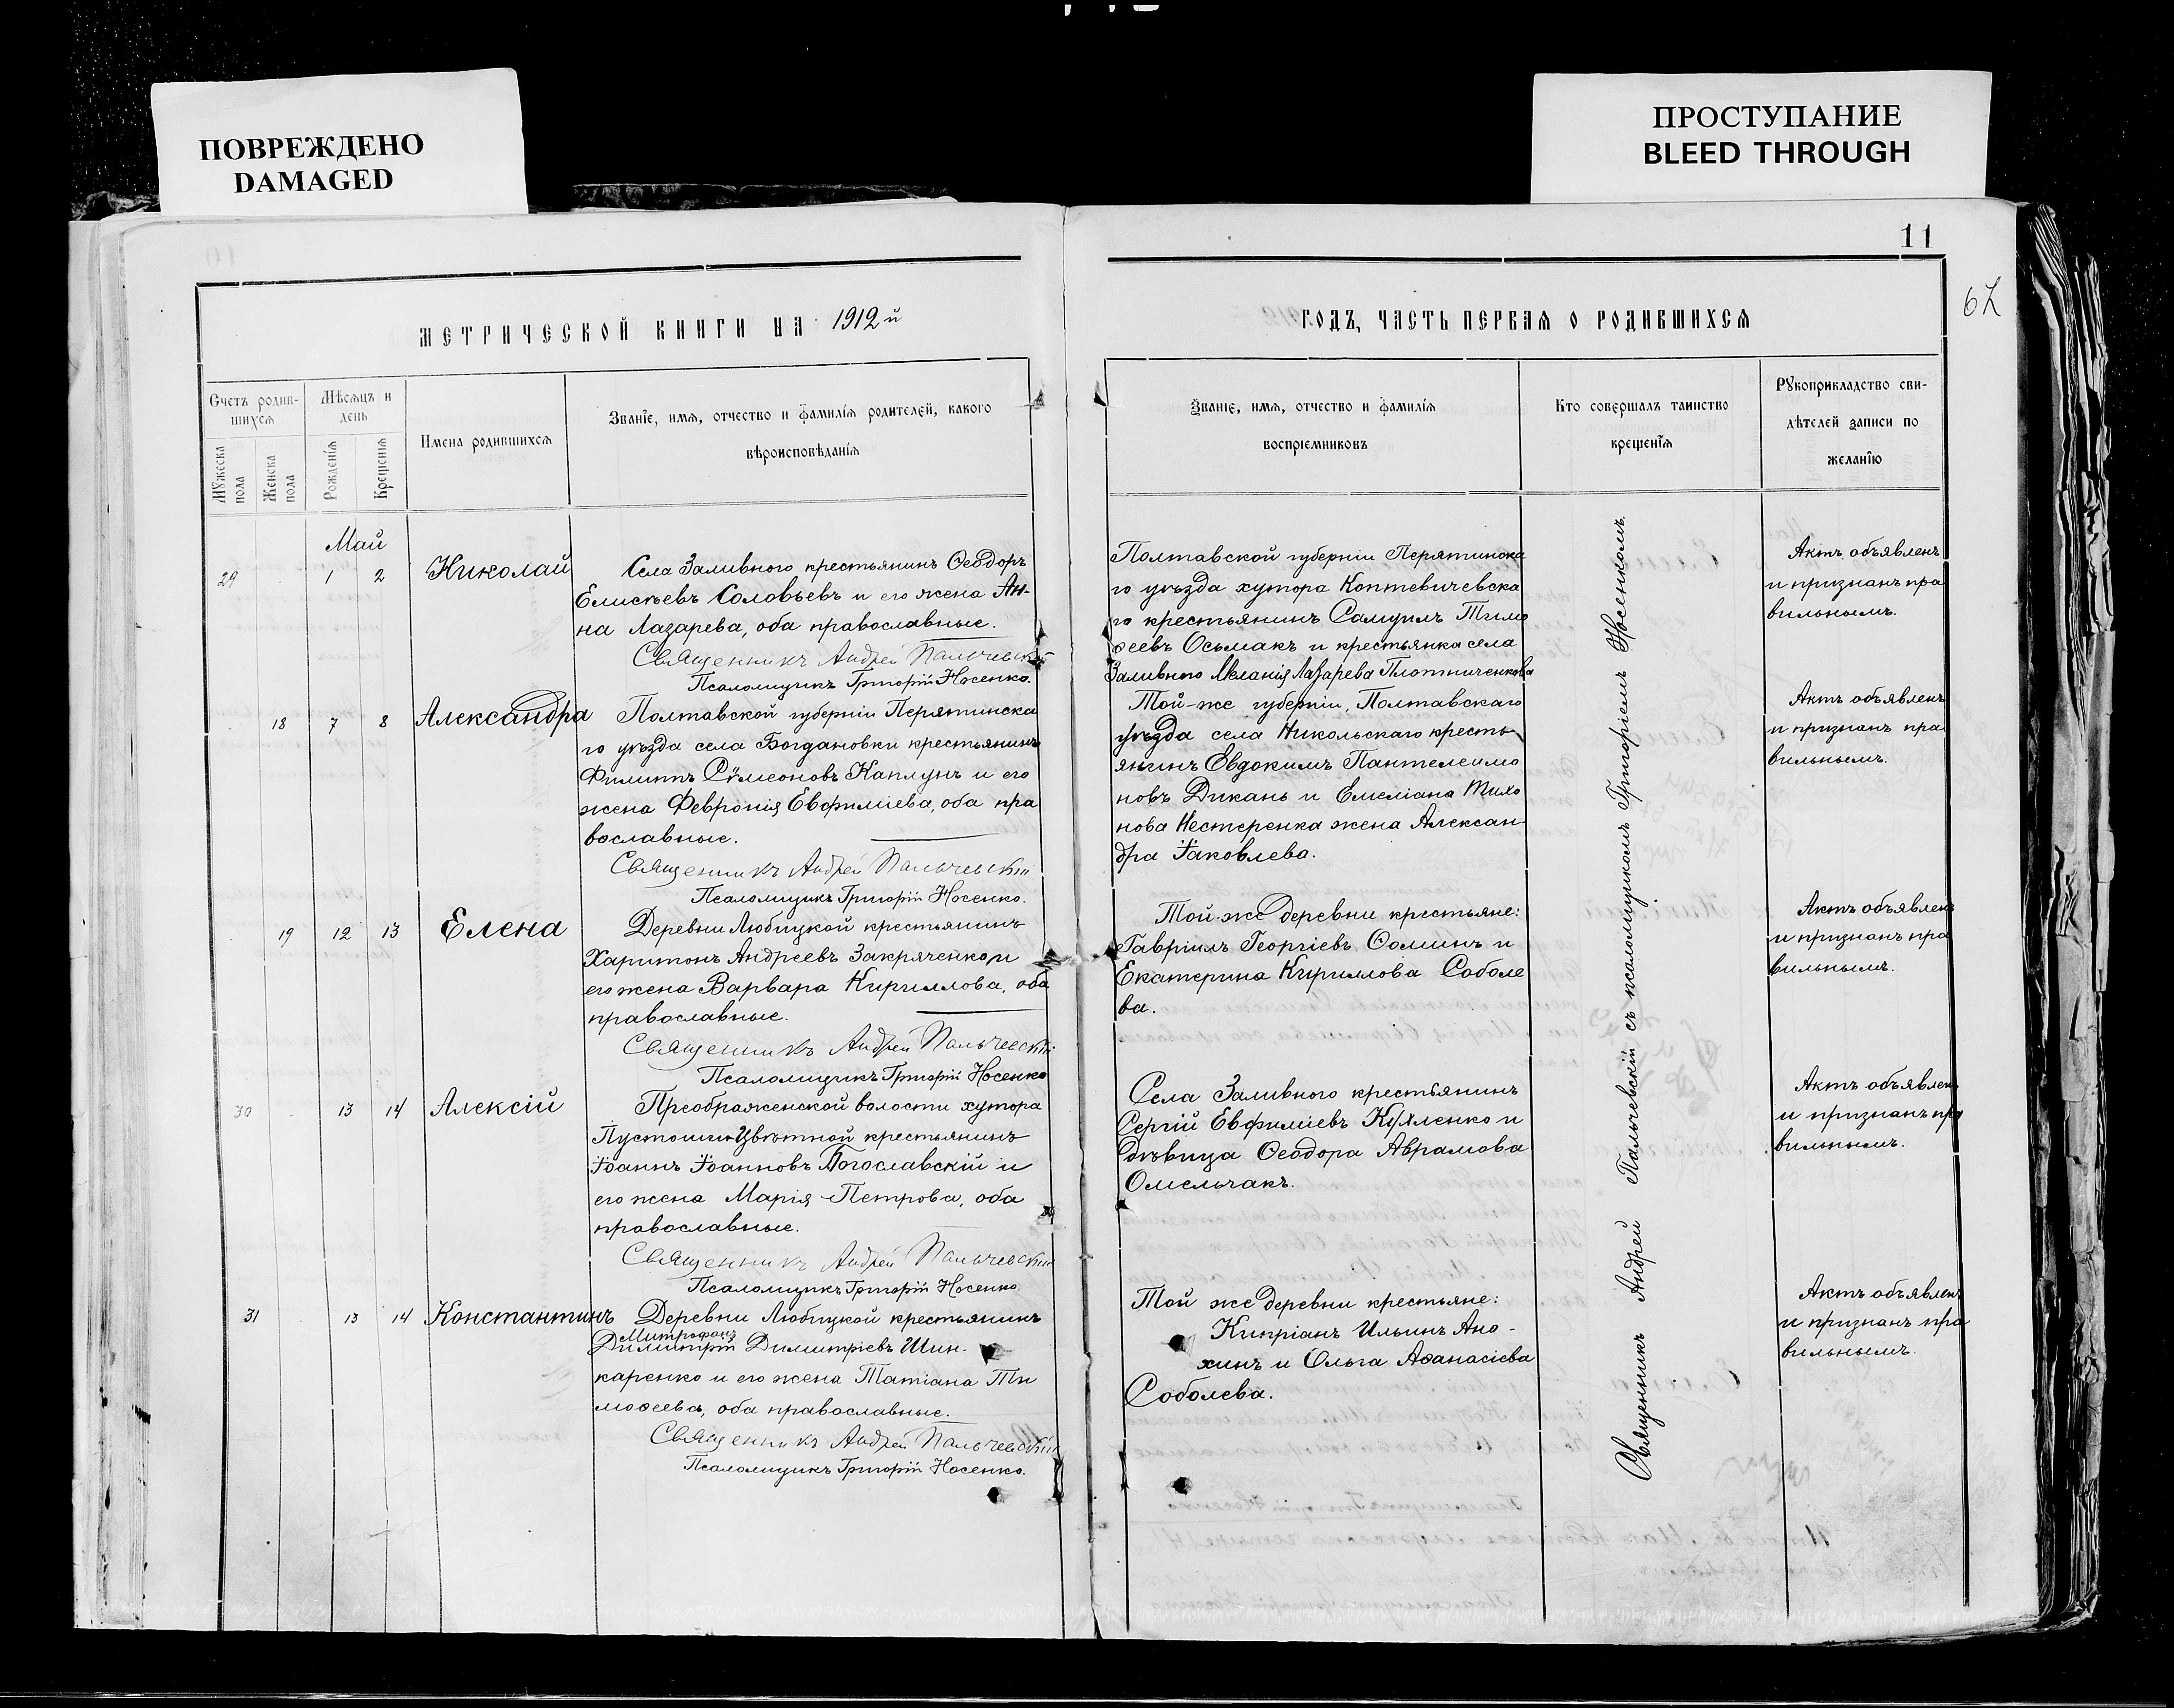 ПОВРЕЖДЕНО
DAMAGED
ПРОСТУПАНИЕ
BLEED THROUGH
11
67
МЕТРИЧЕСКОЙ КНИГИ НА 1912й
ГОДЪ, ЧАСТЬ ПЕРВАЯ О РОДИВШИХСЯ
Счетъ родив-
шихся
Мужеска пола
Женска пола
Мѣсяцъ и
день
Рожденія
Крещенія
Имена родившихся
Званіе, имя, отчество и фамилія родителей, какого
вѣроисповѣданія
Званіе, имя, отчество и фамилія
воспріемниковъ
Кто совершалъ таинство
крещенія
Рукоприкладство сви-
дѣтелей записи по
желанію
Май
29 1 2 Николай
Села Заливного крестьянинъ Ѳеодоръ
Елисѣевъ Соловьевъ и его жена Ан-
на Лазарева, оба православные.
Священникъ Андрей Пальчевскій
Псаломщикъ Григорій Носенко.
Полтавской губерніи Пирятинска
го уѣзда хутора Коптевичевска
го крестьянинъ Самуилъ Тимо
ѳеевъ Осьмакъ и крестьянка села
Заливного Меланія Лазарева Плотниченкова
Актъ объявленъ
и признанъ пра
вильнымъ.
18 7 8 Александра
Полтавской губерніи Перятинска
го уѣзда села Богдановки крестьянинъ
Филиппъ Сѵмеоновъ Каплунъ и его
жена Февронія Евфиміева, оба пра
вославные.
Священникъ Андрей Пальчевскій
Псаломщикъ Григорій Носенко.
Той-же губерніи, Полтавскаго
уѣзда села Никольскаго кресть
янинъ Евдокимъ Пантелеимо
новъ Дикань и Емеліана Тихо
нова Нестеренка жена Алексан-
дра Іаковлева.
Актъ объявленъ
и признанъ пра
вильнымъ.
19 12 13 Елена
Деревни Любицкой крестьянинъ
Харитонъ Андреевъ Закряченко и
его жена Варвара Кириллова, оба
православные.
Священникъ Андрей Пальчевскій
Псаломщикъ Григорій Носенко
Той-же деревни крестьяне:
Гавріилъ Георгіевъ Соминъ и
Екатерина Кириллова Соболе
ва.
Актъ объявленъ
и признанъ пра
вильнымъ.
30 13 14 Алексій
Преображенской волости хутора
Пустоши-Цвѣтной крестьянинъ
Іоаннъ Іоанновъ Богославскій и
его жена Марія Петрова, оба
православные.
Священникъ Андрей Пальчевскій
Псаломщикъ Григорій Носенко
Села Заливного крестьянинъ
Сергій Евфиміевъ и
дѣвица Ѳеодора Аврамова
Омельчакъ.
Актъ объявленъ
и признанъ пра
вильнымъ.
31 13 14 Константинъ
Деревни Любицкой крестьянинъ
Митрофанъ
Димитрій Димитріевъ Шин-
каренко и его жена Татіана Ти
моѳеева, оба православные.
Священникъ Андрей Пальчевскій
Псаломщикъ Григорій Носенко.
Той же деревни крестьяне:
Кипріанъ Ильинъ Ано-
хинъ и Ольга Аѳанасіева
Соболева.
Актъ объявленъ
и признанъ пра
вильнымъ.
Священникъ Андрей Пальчевскій съ псаломщикомъ Григоріемъ Носенкомъ.